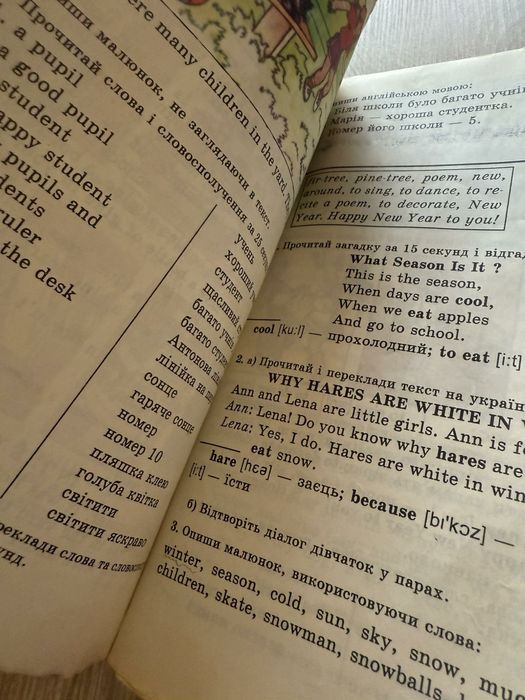 ere many children in the yard.
пиши малюнок, не заглядаючи в текст.
Прочитай слова і словосполучення за 25
a pupil
a good pupil
student
appy student
pupils and
dents
ruler
the desk
учень
хороший
студент
щасливий
багато
багато
Антонова
лінійка на
сонце
гаряче сонце
номер
номер 10
пляшка клею
голуба квітка
світити
світити яскраво
реклади слова та
унд.
пиши англійською мовою:
Біля школи було багато учнів
Марія — хороша студентка.
Номер його школи — 5.
fir-tree, pine-tree, poem, new,
around, to sing, to dance, to re-
cite a poem, to decorate, New
Year. Happy New Year to you!
Прочитай загадку за 15 секунд і відгад
What Season Is It ?
This is the season,
When days are cool,
When we eat apples
And go to school.
cool [ku:l] — прохолодний; to eat [i:t]
2. а) Прочитай і переклади текст на україн
WHY HARES ARE WHITE IN
Ann and Lena are little girls. Ann is
Ann: Lena! Do you know why hares are
Lena: Yes, I do. Hares are white in win
eat snow.
hare [hεə] — заєць; because [bɪ'kɔz] —
[i:t] — їсти
б) Відтворіть діалог дівчаток у парах.
3. Опиши малюнок, використовуючи слова:
winter, season, cold, sun, sky, snow,
children, skate, snowman, snowballs